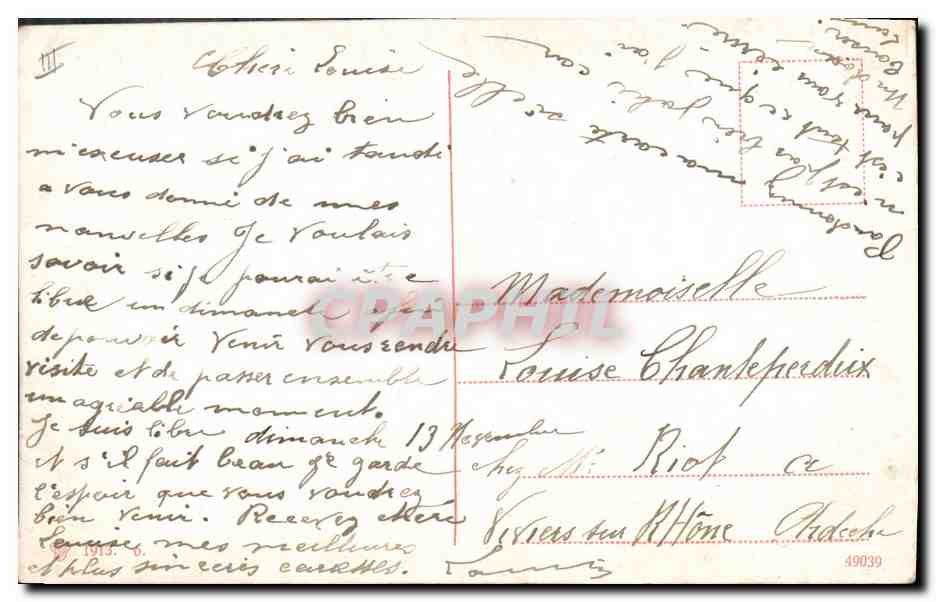 III
Chéri Louise
Vous voudrez bien
m'excuser si j'ai tandi
a vous donné de mes
nauvelles Je voulais
savoir si je pourai être
libre un dimanche afin
de pouvoir venir vous rendre
visite et de passer ensemble
un agréable moment.
Je suis libre dimanche 13 Novembre
et s'il fait beau je garde
l'espoir que vous voudrez
bien venir. Recevez chéri
Louise mes meilleures
et plus sincères caresses.
Pardonner ma carte si elle
n'est pas bien jolie car
c'est tout ce que j'ai
pour vous écrire
Un doux
Mademoiselle
Louise Chanteperdrix
chez Mr Riot
Viviers sur Rhône Ardèche
CPAPHIL
1913. 6.
49039